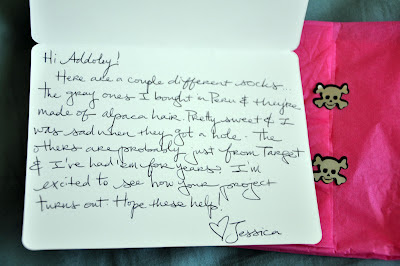 Hi Addoley!
Here are a couple different socks....
the gray ones I bought in Peru & they're
made of alpaca hair. Pretty sweet & I
was sad when they got a hole. The
others are probably just from Target
& I've had 'em for years? I'm
excited to see how your project
turns out. Hope these help!
♡Jessica